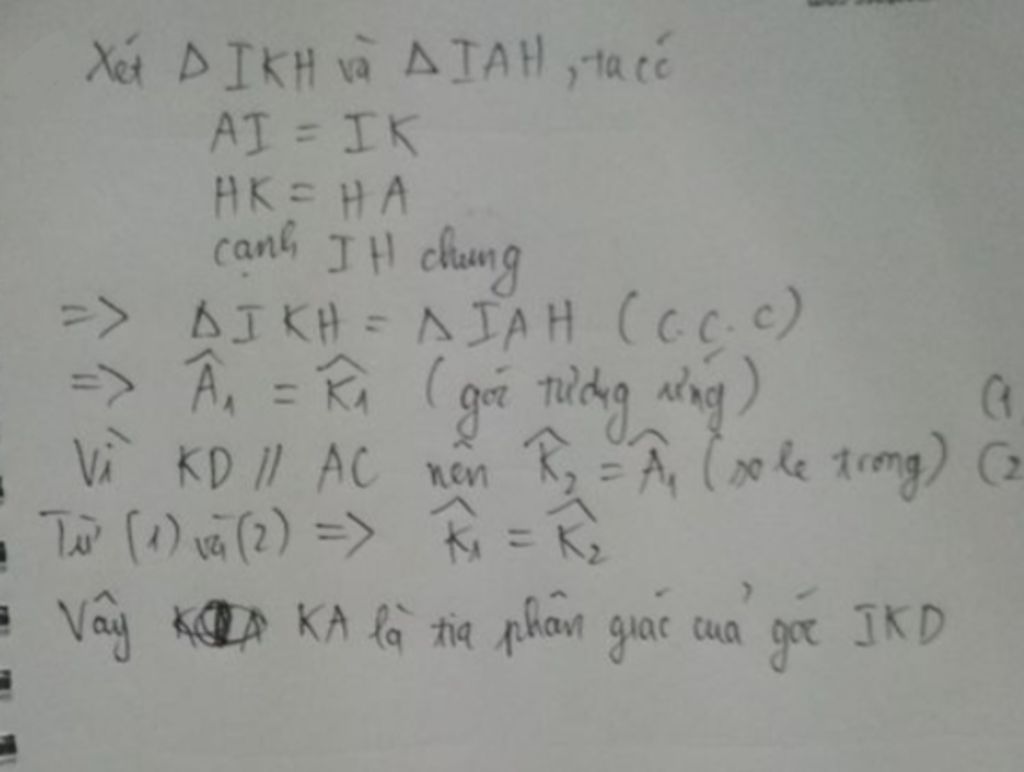 Xét Δ IKH và Δ IAH, ta có
AI = IK
HK = HA
cạnh IH chung
=> Δ IKH = Δ IAH (c.c.c)
=> Â₁ = K̂₁ (góc tương ứng) (1
Vì KD // AC nên K̂₂ = Â₁ (so le trong) (2
Từ (1) và (2) => K̂₁ = K̂₂
Vậy KA là tia phân giác của góc IKD